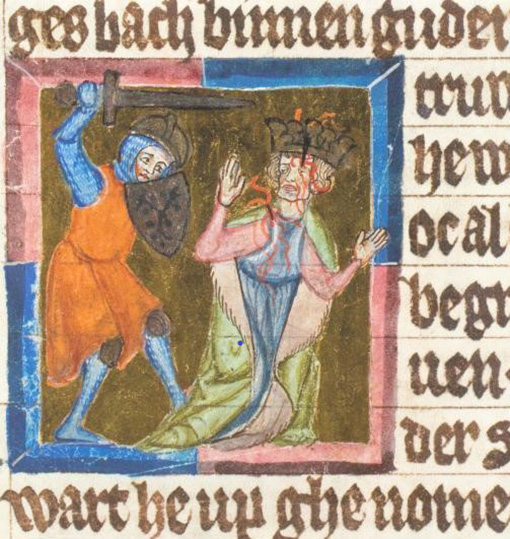 ges bach binnen guder
truw
hew
ocal
begr
uen
der s
wart he up ghe nome